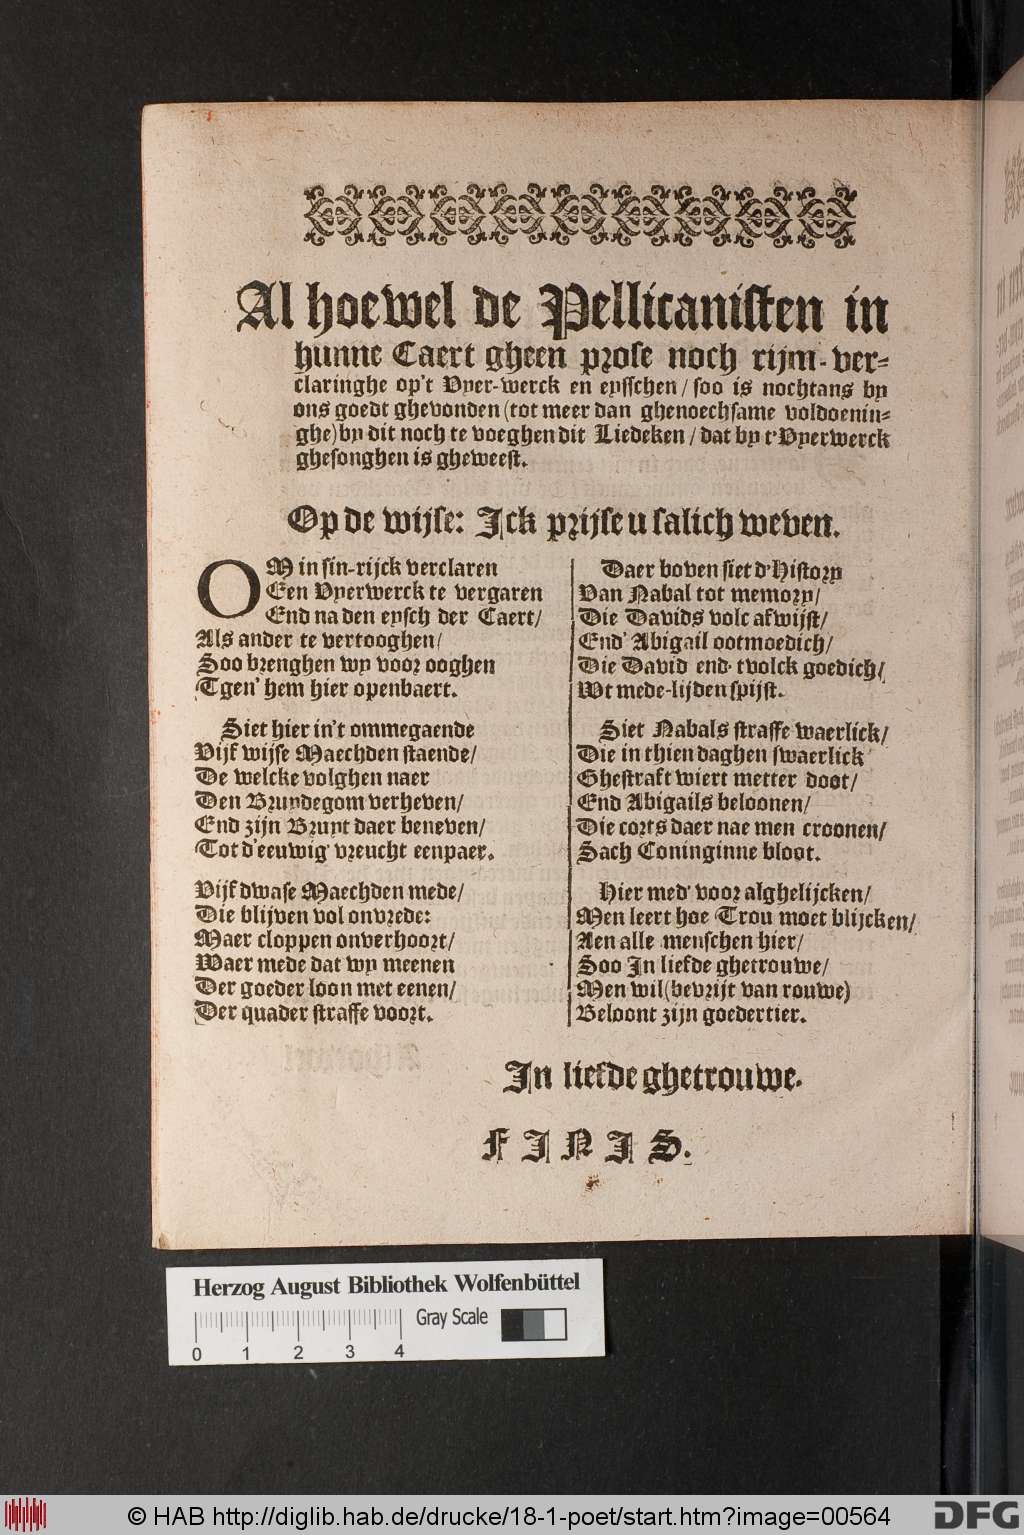 Al hoewel de Pellicanisten in
hunne Caert gheen prose noch rijm-ver=
claringhe op't Vyer-werck en eysschen / soo is nochtans by
ons goedt ghevonden (tot meer dan ghenoechsame voldoenin=
ghe) by dit noch te voeghen dit Liedeken / dat by t'Vyerwerck
ghesonghen is gheweest.
Op de wijse: Ick prijse u salich weven.
OM in sin-rijck verclaren
Een Vyerwerck te vergaren
End na den eysch der Caert /
Als ander te vertooghen /
Soo brenghen wy voor ooghen
Tgen' hem hier openbaert.
Siet hier in't ommegaende
Vijf wijse Maechden staende /
De welcke volghen naer
Den Bruydegom verheven /
End zijn Bruyt daer beneven /
Tot d'eeuwig' vreucht eenpaer.
Vijf dwase Maechden mede /
Die blijven vol onvrede:
Maer cloppen onverhoort /
Waer mede dat wy meenen
Der goeder loon met eenen /
Der quader straffe voort.
Daer boven siet d'History
Van Nabal tot memory /
Die Davids volc afwijst /
End' Abigail ootmoedich /
Die David end' tvolck goedich /
Wt mede-lijden spijst.
Siet Nabals straffe waerlick /
Die in thien daghen swaerlick
Ghestraft wiert metter doot /
End Abigails beloonen /
Die corts daer nae men croonen /
Sach Coninginne bloot.
Hier med' voor alghelijcken /
Men leert hoe Trou moet blijcken /
Aen alle menschen hier /
Soo In liefde ghetrouwe /
Men wil (bevrijt van rouwe)
Beloont zijn goedertier.
In liefde ghetrouwe.
FINIS.
Herzog August Bibliothek Wolfenbüttel
Gray Scale
0 1 2 3 4
© HAB http://diglib.hab.de/drucke/18-1-poet/start.htm?image=00564
DFG